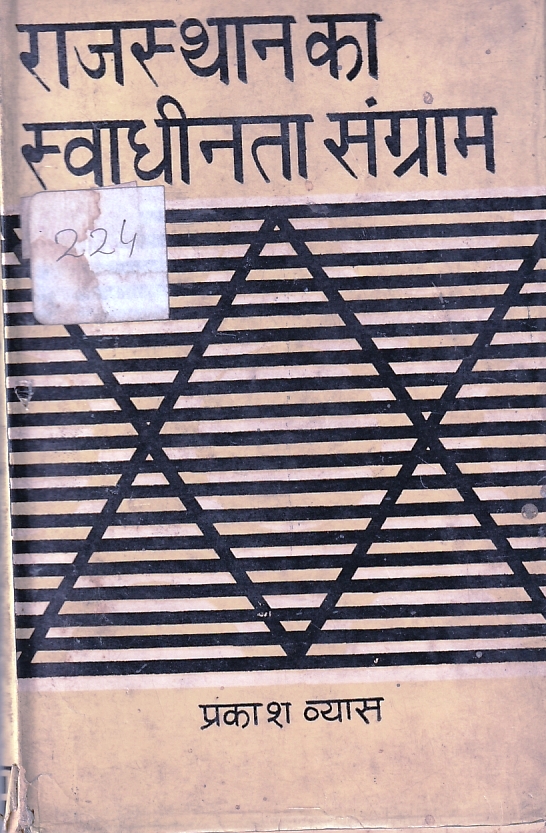 राजस्थान का
स्वाधीनता संग्राम
224
प्रकाश व्यास